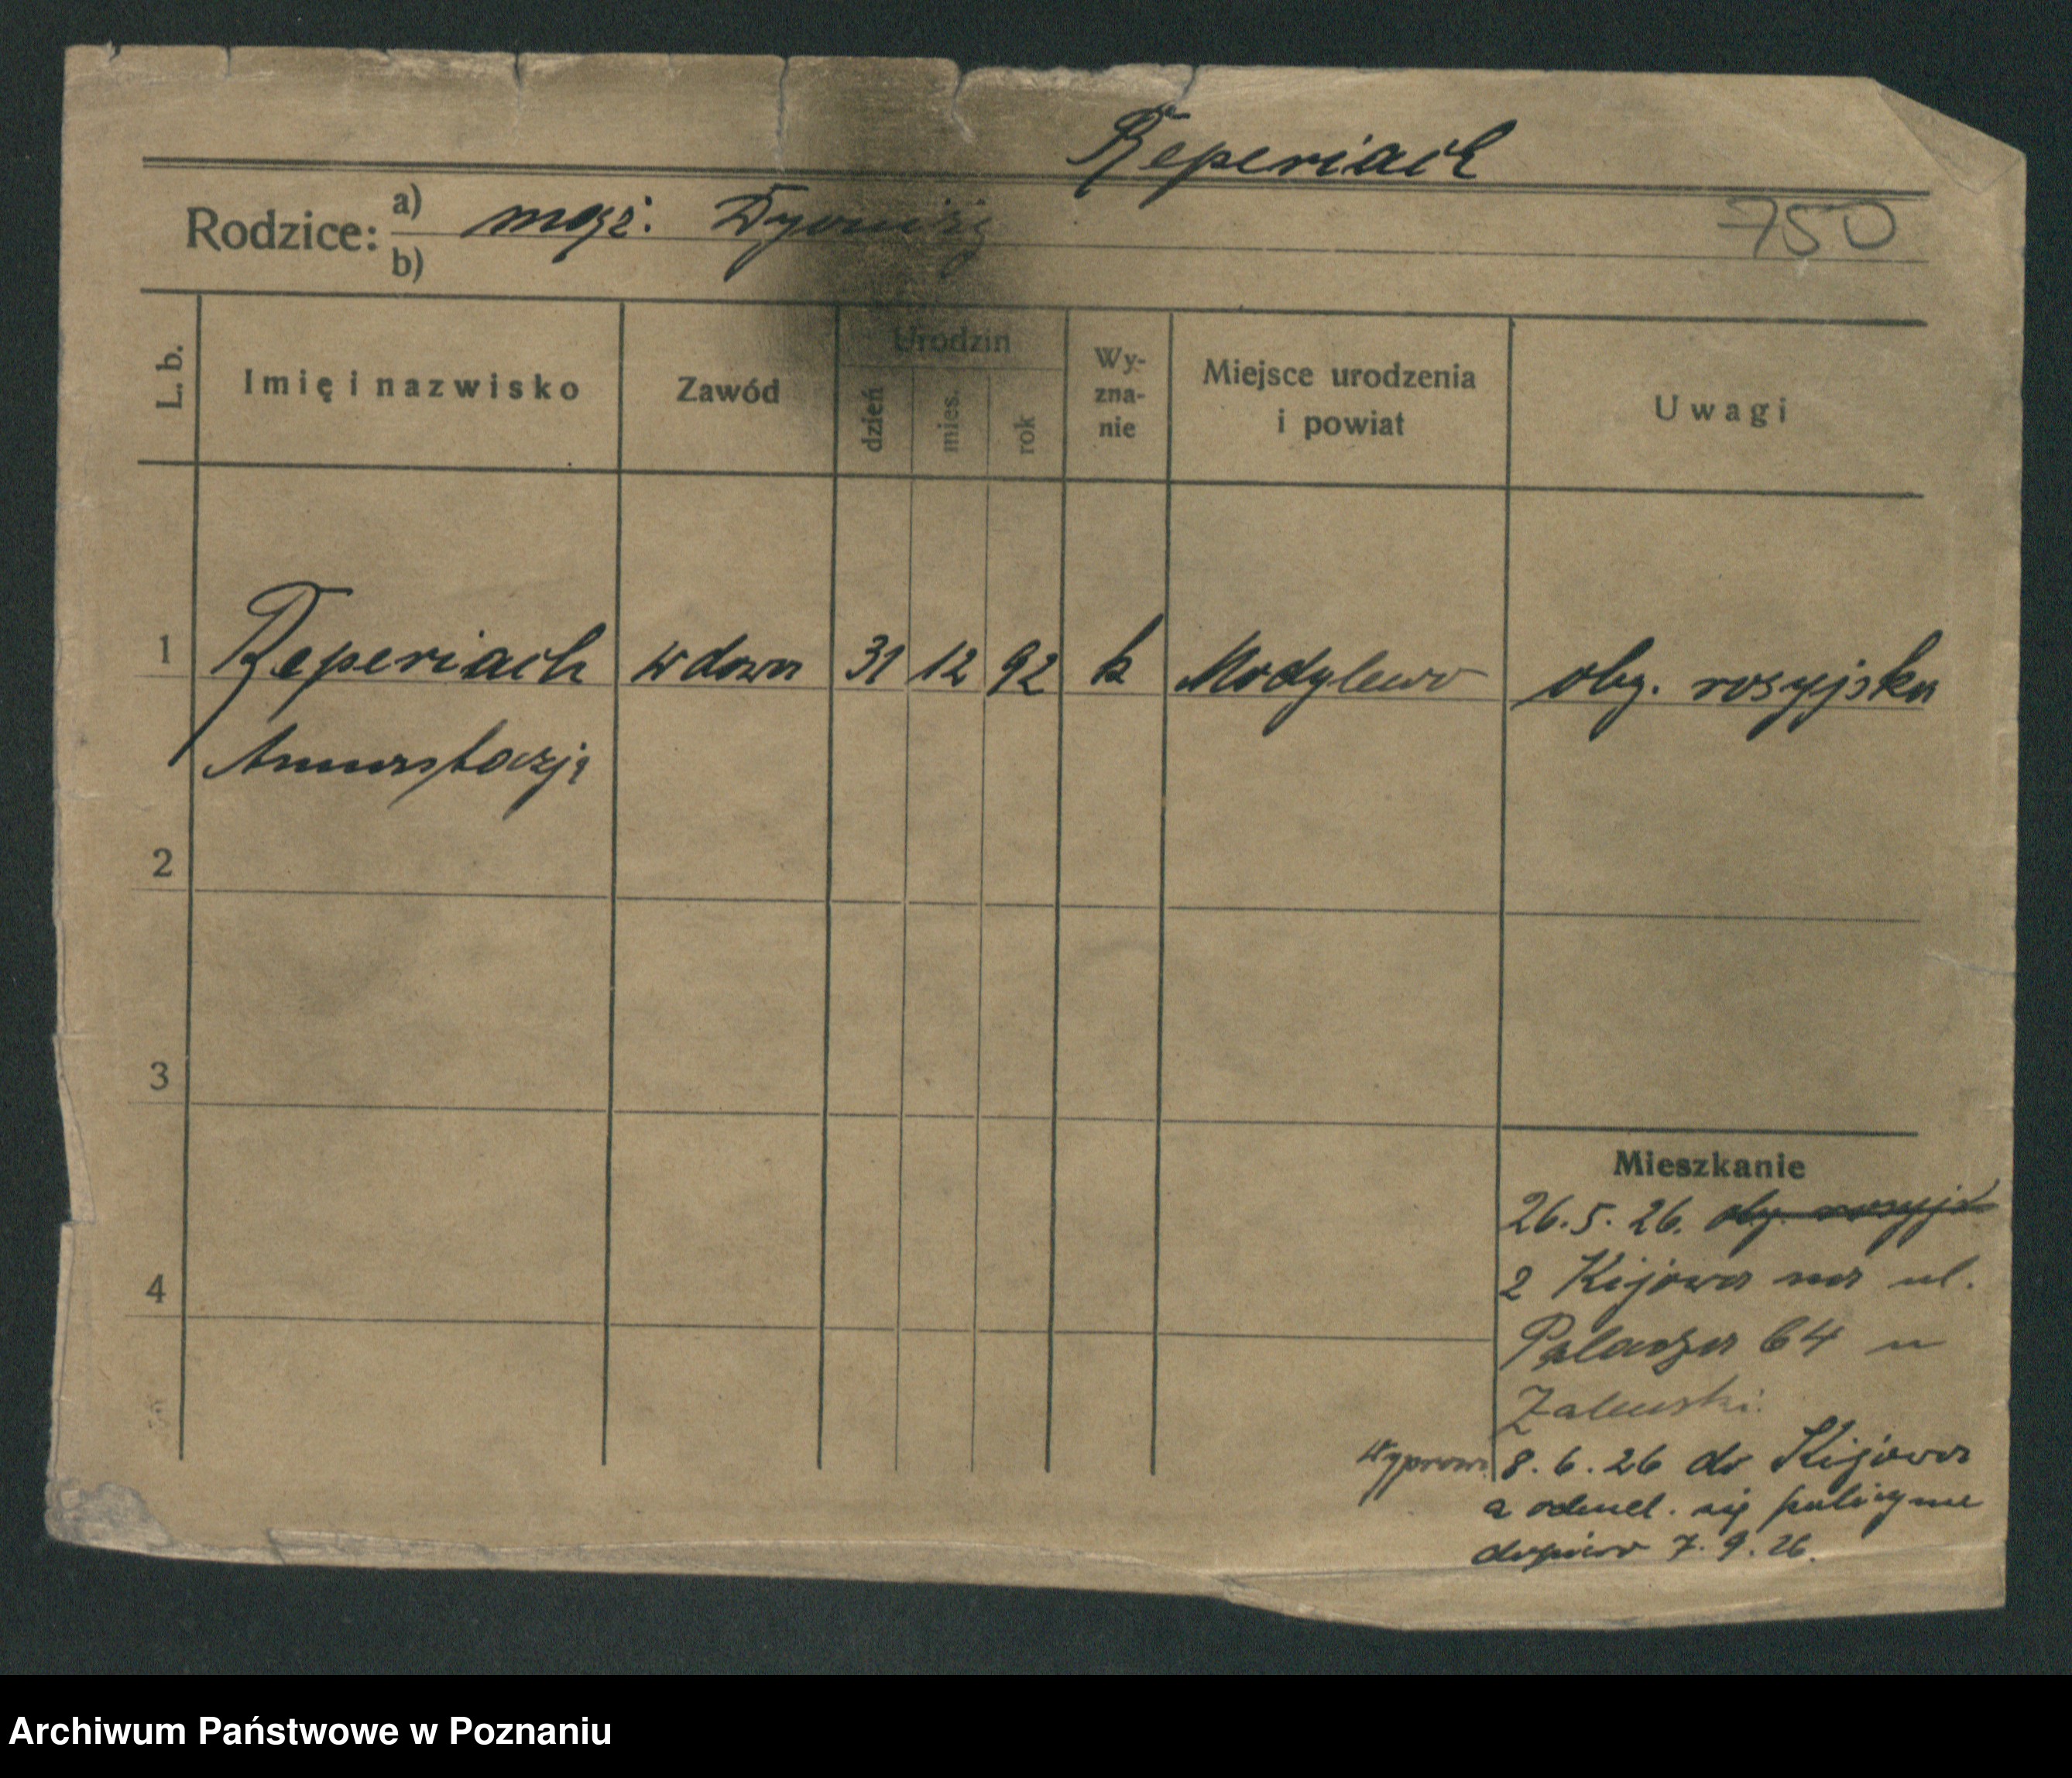 Reperiach
Rodzice: a) mąż: Dyonizy
b)
750
L. b.
Imię i nazwisko
Zawód
Urodzin
dzień
mies.
rok
Wy-
zna-
nie
Miejsce urodzenia
i powiat
Uwagi
1 Reperiach wdowa 31 12 92 k Modylewo oby. rosyjska
Anastazja
2
3
Mieszkanie
26.5.26. oby. rosyjs
4
z Kijowa na ul.
64 u
Zaleski.
Wyprow. 8.6.26 do Kijowa
a odmel. się policyjne
dopiero 7.9.26.
Archiwum Państwowe w Poznaniu